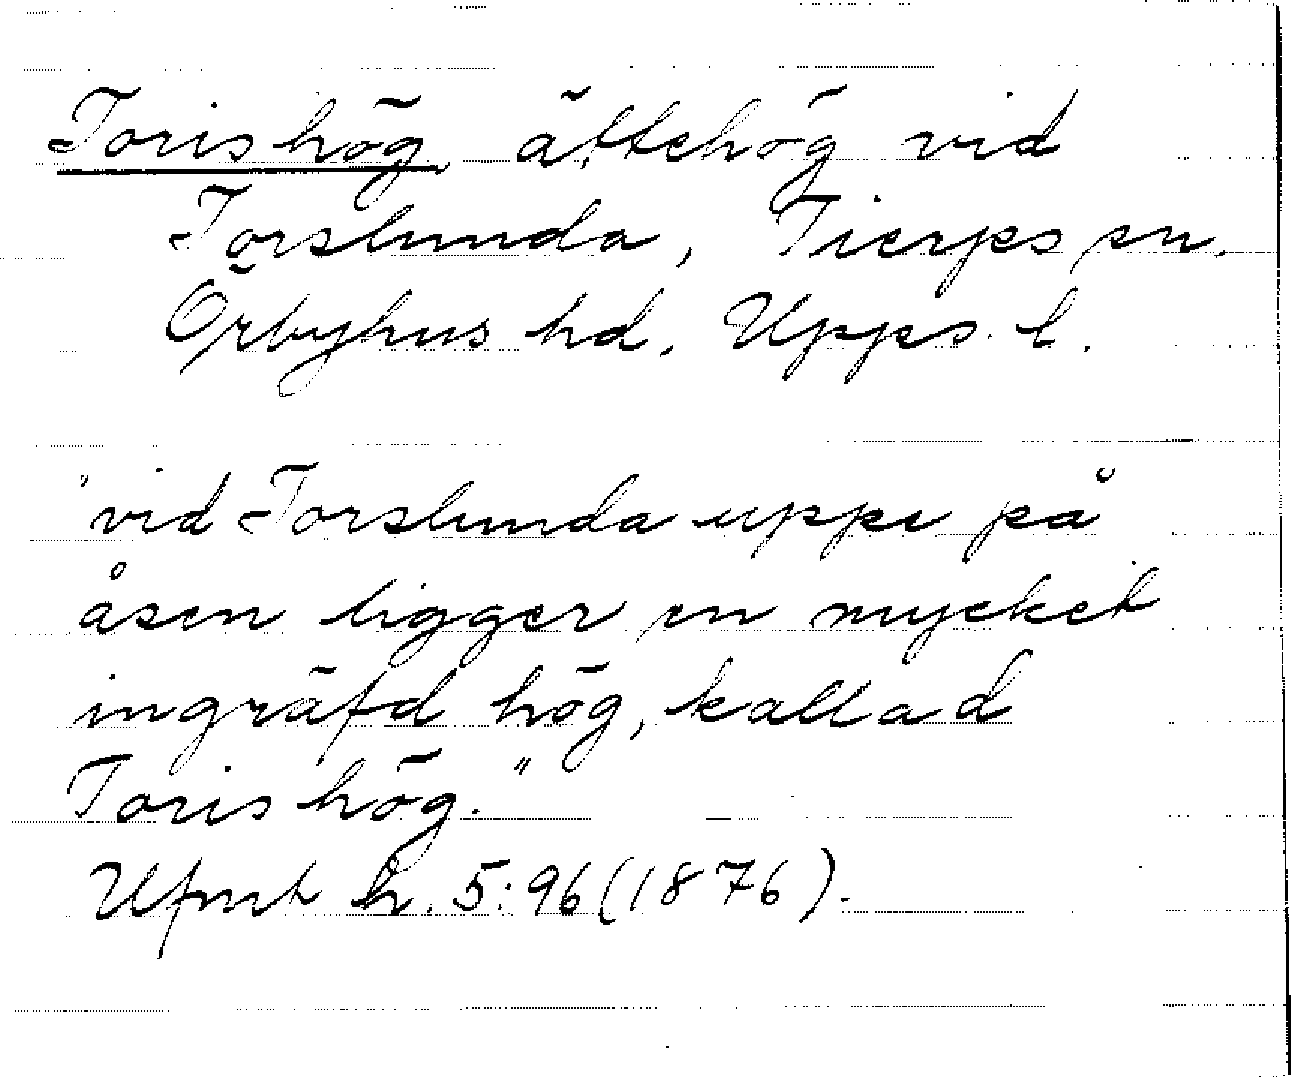 Toris hög, ättehög vid
Torslunda, Tierps sn.
Örbyhus hd. Upps. l.
"vid Torslunda uppe på
åsen ligger en mycket
ingräfd hög, kallad
Toris hög."
Ufmt h. 5:96 (1876).